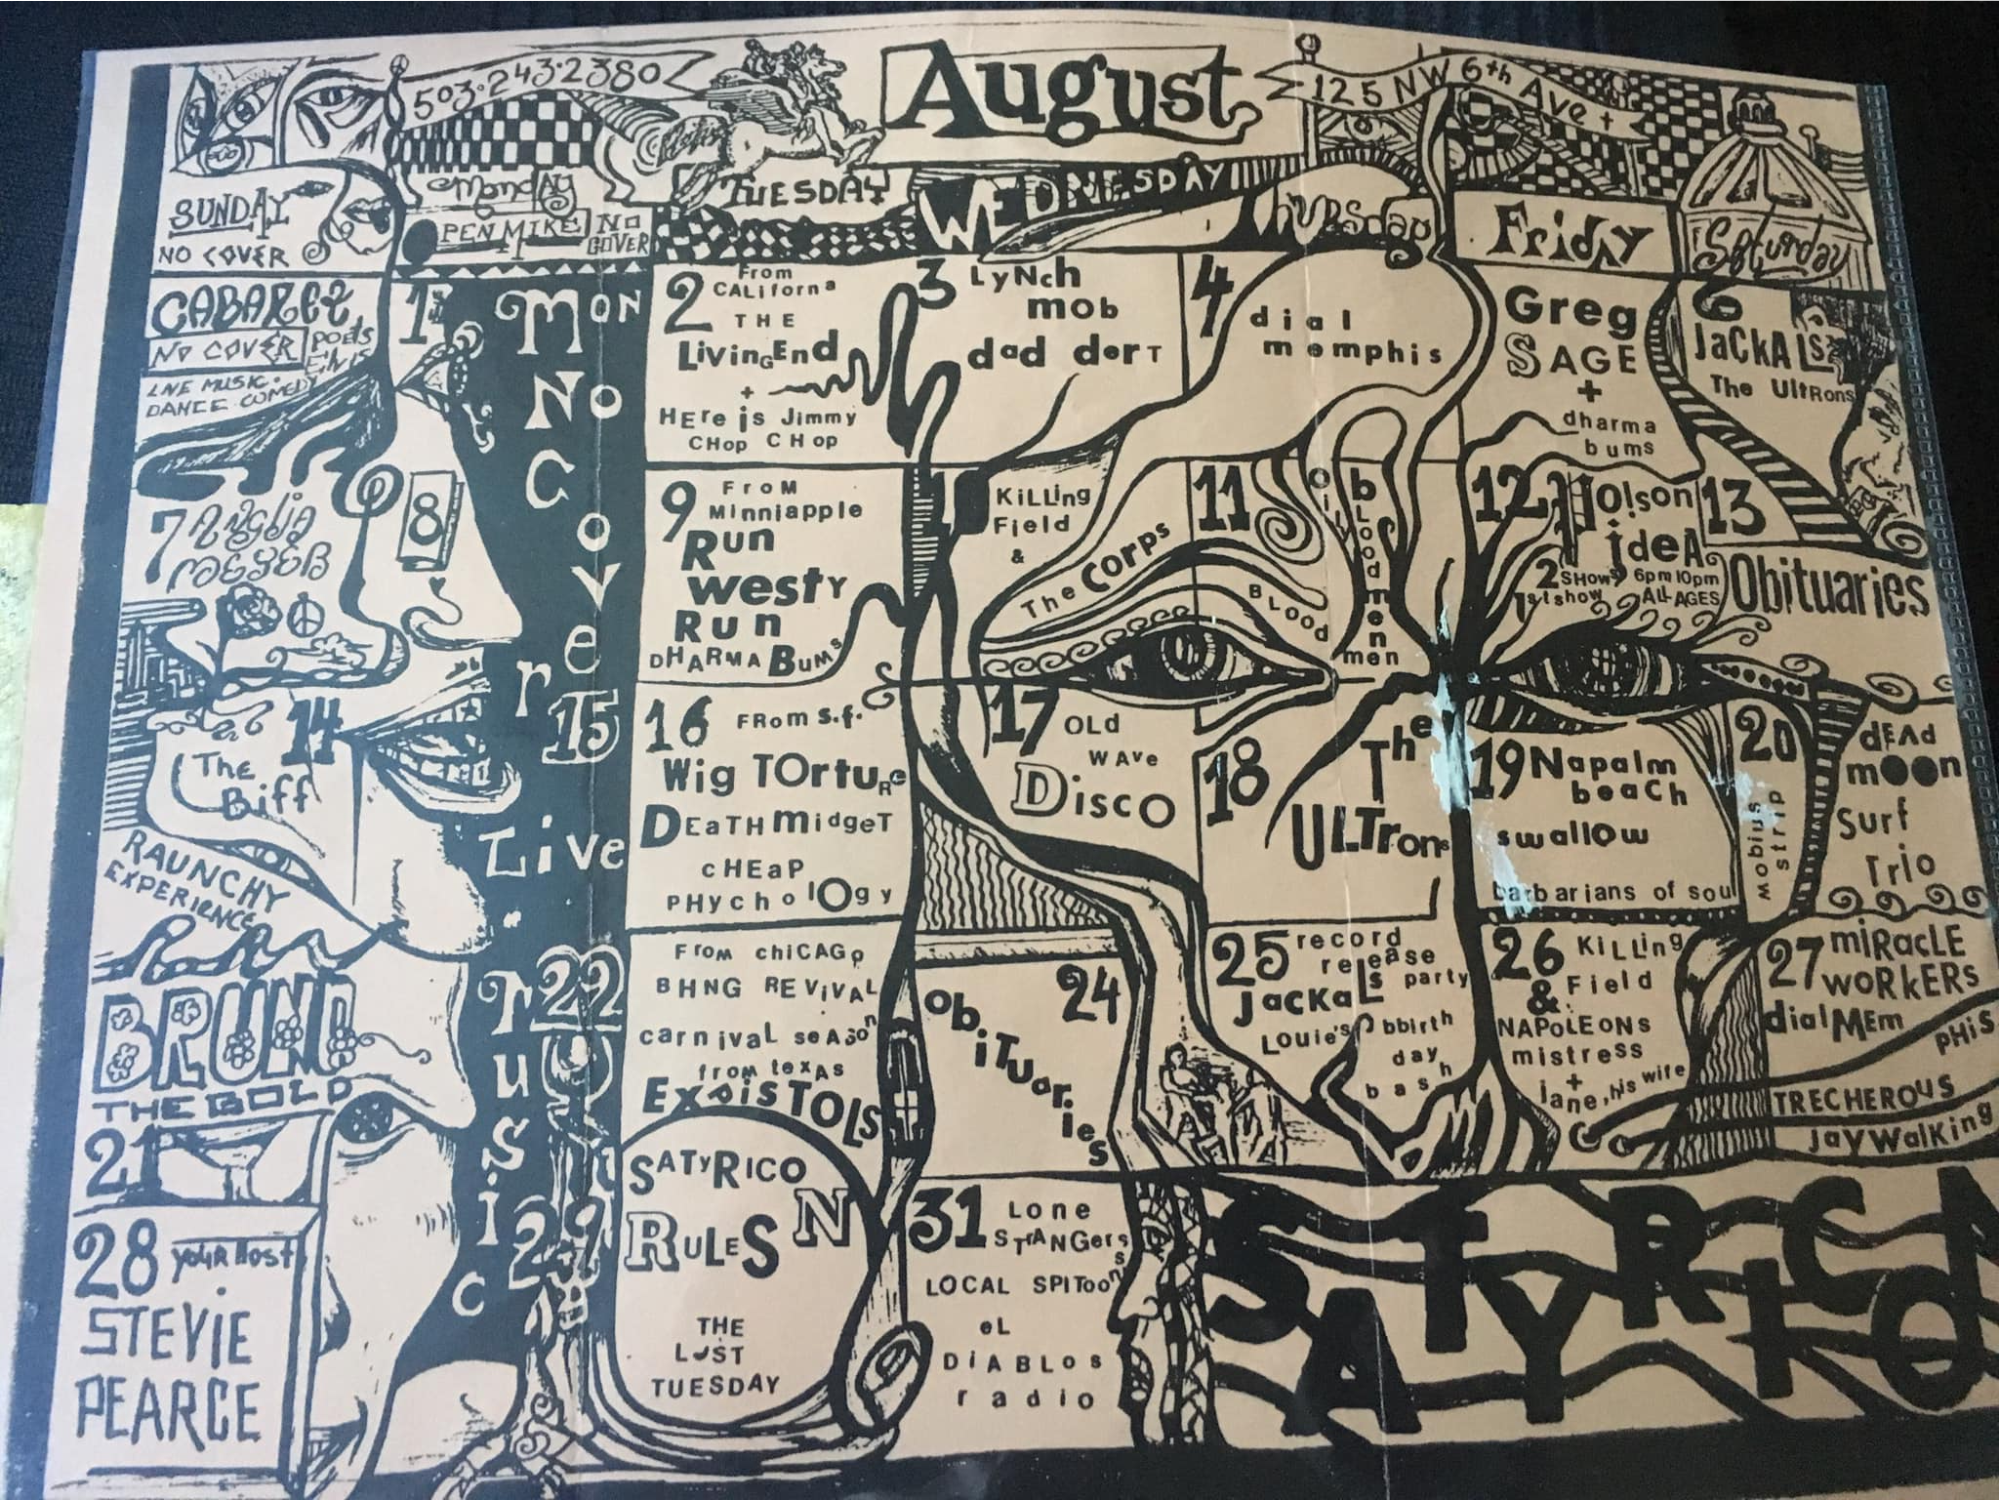 503·243·2380
August
125 NW 6th Ave
SUNDAY
NO COVER
Monday
OPEN MIKE NO
COVER
TUESDAY
WEDNESDAY
Thursday
Friday
Saturday
CABARET
NO COVER
poets
ELVIS
LIVE MUSIC·
DANCE COMEDY
1
MON
No
Cover
Live
Music
2 From
CALiforna
THE
LivingEnd
+
HEre is Jimmy
CHop CHop
3 LyNch
mob
dad dert
4
dial
memphis
Greg
SAGE
+
dharma
bums
6
JaCkALS
The UltRons
7
8
9 FroM
Minniapple
Run
westy
Run
DHARMA BumS
KiLLing
Field
&
The Corps
11
oily
bLoodmen
BLOOD
men
12 Poison
ideA
2 SHOWS 6pm 10pm
1st show ALL AGES
13
Obituaries
14
The
Biff
RAUNCHY
EXPERIENCE
15
16 FRom s.f.
Wig TOrtuRe
DEaTH midgeT
cHEaP
PHychology
17 OLd
WAve
Disco
18
The
ULTrons
19 Napalm
beaCh
swallow
barbarians of soul
20
mobius
strip
dEAd
mOOn
Surf
Trio
BRUNO
THE BOLD
21
22
From chiCAGo
BHNG REViVAL
carnivaL seASon
from texAS
ExpisTOLS
24
obiTUaries
25 record
release
party
JacKaLs
Louie's bbirth
day
bash
26 KiLLing
Field
&
NAPoLEONS
mistress
+
jane, his wife
27 miRacLE
woRkERS
dialMEmpHiS
TRECHEROUS
JayWalKing
28 your Host
STEVIE
PEARCE
29
SATyRICO
N
RULES
THE
LUST
TUESDAY
31 Lone
STrANGers
LOCAL SPIToonS
eL
DiABLos
radio
SATYRICON